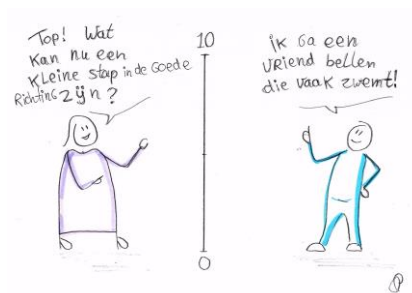 Top! Wat
kan nu een
kleine stap in de goede
Richting zijn?
10
0
ik ga een
vriend bellen
die vaak zwemt!